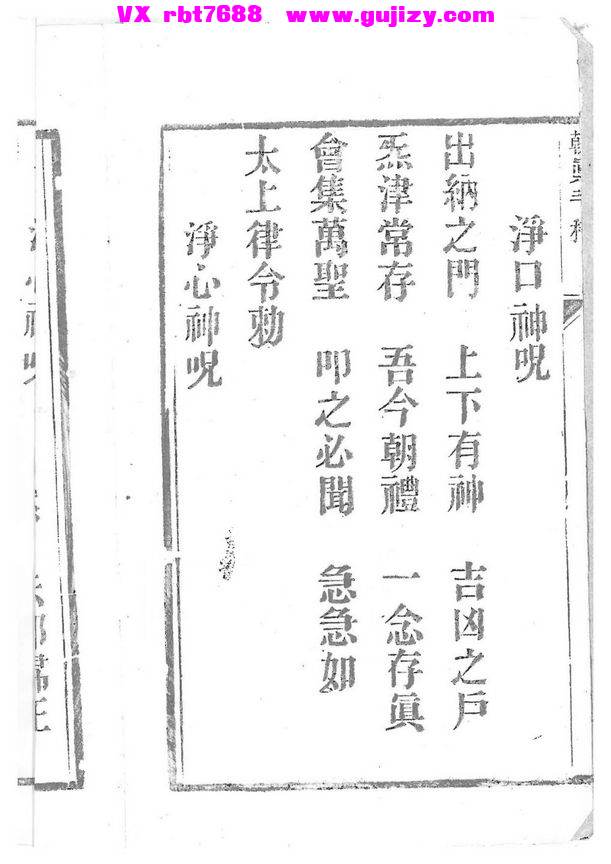 VX rbt7688 www.gujizy.com
淨口神呪
出納之門 上下有神 吉凶之戶
炁津常存 吾今朝禮 一念存眞
會集萬聖 叩之必聞 急急如
太上律令勅
淨心神呪